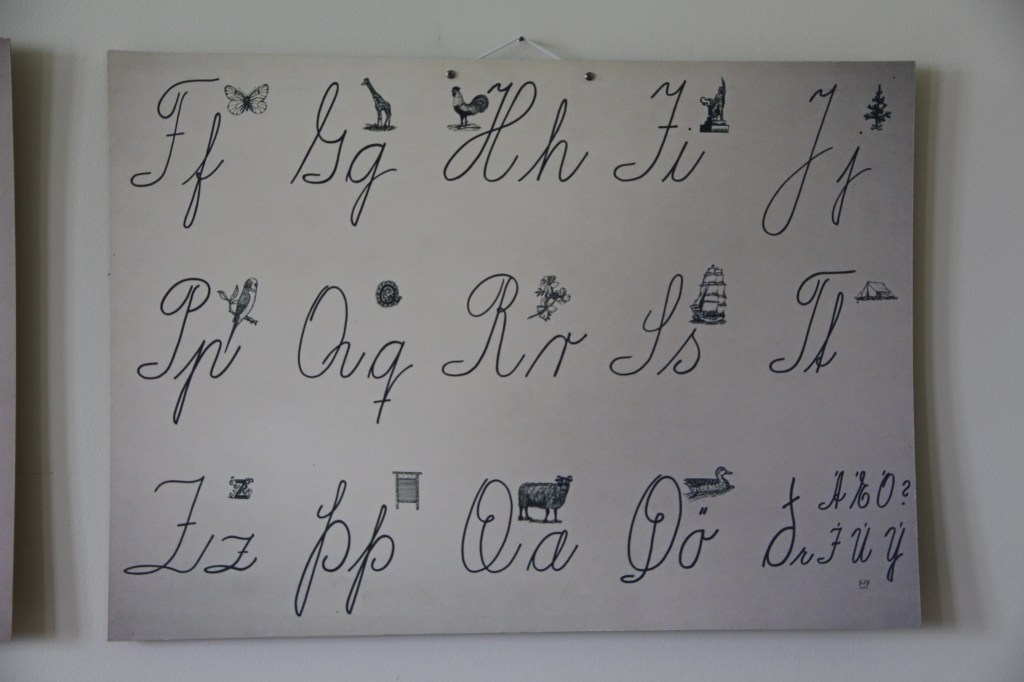 F f G g H h I i J j
P p Q q R r S s T t
Z z Þ þ Æ æ Ö ö ð Á É Ó ?
r Í Ú Ý